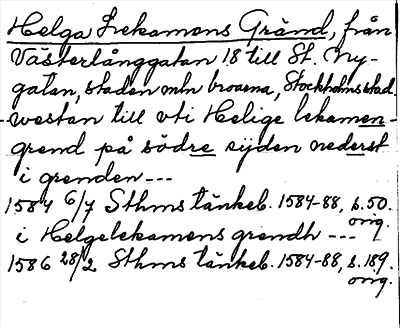 Helga Lekamens Gränd, från
Västerlånggatan 18 till St. Ny-
gatan, staden mln broarna, Stockholms stad.
-westan till vti Helige lekamen-
grend på södre sijden nederst
i grenden---
1584 6/7 Sthms tänkeb. 1584-88, s. 50.
orig.
i Helgelekamens grendh ---
1586 28/2 Sthms tänkeb. 1584-88, s. 189.
orig.